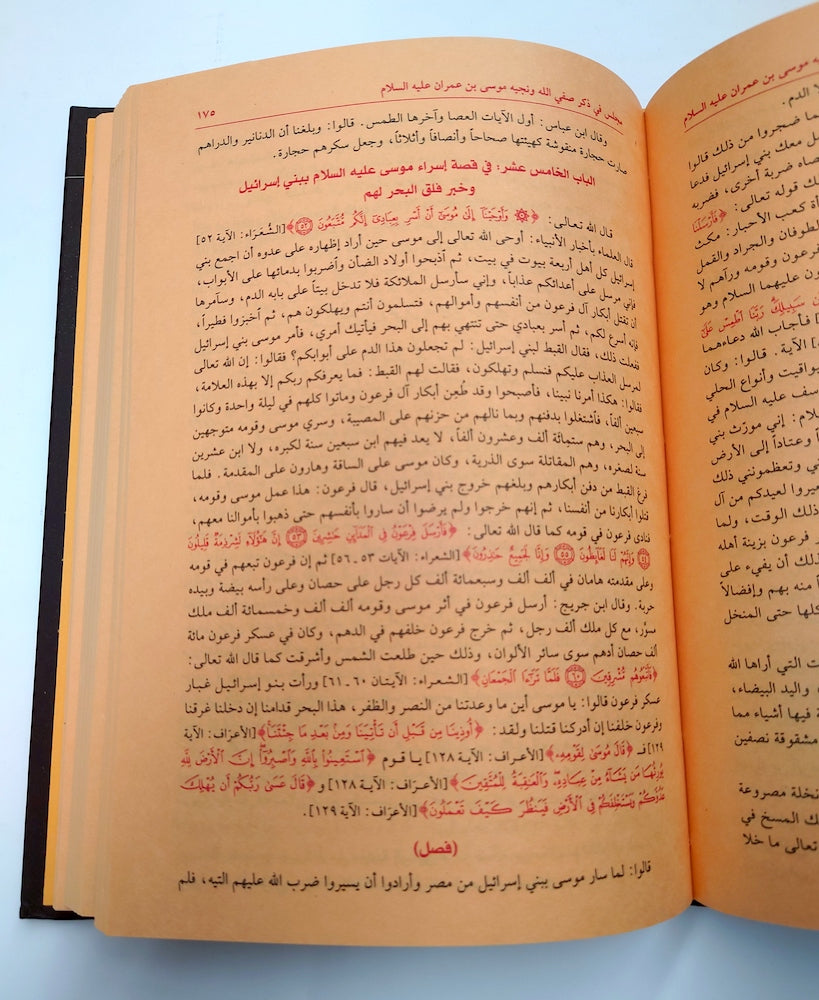 مجلس في ذكر صفي الله ونجيه موسى بن عمران عليه السلام ١٧٥
وقال ابن عباس: أول الآيات العصا وآخرها الطمس. قالوا: وبلغنا أن الدنانير والدراهم
صارت حجارة منقوشة كهيئتها صحاحاً وأنصافاً وأثلاثاً، وجعل سكرهم حجارة.
الباب الخامس عشر: في قصة إسراء موسى عليه السلام ببني إسرائيل
وخبر فلق البحر لهم
قال الله تعالى: ﴿وَأَوْحَيْنَا إِلَى مُوسَى أَنْ أَسْرِ بِعِبَادِي إِنَّكُم مُّتَّبَعُونَ ٥٢﴾ [الشُعَرَاء: الآية ٥٢]
قال العلماء بأخبار الأنبياء: أوحى الله تعالى إلى موسى حين أراد إظهاره على عدوه أن اجمع بني
إسرائيل كل أهل أربعة بيوت في بيت، ثم أذبحوا أولاد الضأن وأضربوا بدمائها على الأبواب،
فإني مرسل على أعدائكم عذاباً، وإني سأرسل الملائكة فلا تدخل بيتاً على بابه الدم، وسآمرها
أن تقتل أبكار آل فرعون من أنفسهم وأموالهم، فتسلمون أنتم ويهلكون هم، ثم أخبزوا فطيراً،
فإنه أسرع لكم، ثم أسر بعبادي حتى تنتهي بهم إلى البحر فيأتيك أمري، فأمر موسى بني إسرائيل
ففعلت ذلك، فقال القبط لبني إسرائيل: لم تجعلون هذا الدم على أبوابكم؟ فقالوا: إن الله تعالى
لمرسل العذاب عليكم فنسلم وتهلكون، فقالت لهم القبط: فما يعرفكم ربكم إلا بهذه العلامة،
فقالوا: هكذا أمرنا نبينا، فأصبحوا وقد طُعِن أبكار آل فرعون وماتوا كلهم في ليلة واحدة وكانوا
سبعين ألفاً، فأشتغلوا بدفنهم وبما نالهم من حزنهم على المصيبة، وسرى موسى وقومه متوجهين
إلى البحر، وهم ستمائة ألف وعشرون ألفاً، لا يعد فيهم ابن سبعين سنة لكبره، ولا ابن عشرين
سنة لصغره، وهم المقاتلة سوى الذرية، وكان موسى على الساقة وهارون على المقدمة. فلما
فرغ القبط من دفن أبكارهم وبلغهم خروج بني إسرائيل، قال فرعون: هذا عمل موسى وقومه،
قتلوا أبكارنا من أنفسنا، ثم إنهم خرجوا ولم يرضوا أن ساروا بأنفسهم حتى ذهبوا بأموالنا معهم،
فنادى فرعون في قومه كما قال الله تعالى: ﴿فَأَرْسَلَ فِرْعَوْنُ فِي الْمَدَائِنِ حَاشِرِينَ ٥٣ إِنَّ هَؤُلَاءِ لَشِرْذِمَةٌ قَلِيلُونَ
٥٤ وَإِنَّهُمْ لَنَا لَغَائِظُونَ ٥٥ وَإِنَّا لَجَمِيعٌ حَاذِرُونَ﴾ [الشعراء: الآيات ٥٣ ـ ٥٦] ثم إن فرعون تبعهم في قومه
وعلى مقدمته هامان في ألف ألف وسبعمائة ألف كل رجل على حصان وعلى رأسه بيضة وبيده
حربة. وقال ابن جريج: أرسل فرعون في أثر موسى وقومه ألف ألف وخمسمائة ألف ملك
مسوَّر، مع كل ملك ألف رجل، ثم خرج فرعون خلفهم في الدهم، وكان في عسكر فرعون مائة
ألف حصان أدهم سوى سائر الألوان، وذلك حين طلعت الشمس وأشرقت كما قال الله تعالى:
﴿فَأَتْبَعُوهُم مُّشْرِقِينَ ٦٠ فَلَمَّا تَرَاءَا الْجَمْعَانِ﴾ [الشعراء: الآيتان ٦٠ ـ ٦١] ورأت بنو إسرائيل غبار
عسكر فرعون قالوا: يا موسى أين ما وعدتنا من النصر والظفر، هذا البحر قدامنا إن دخلنا غرقنا
وفرعون خلفنا إن أدركنا قتلنا ولقد: ﴿أُوذِينَا مِن قَبْلِ أَن تَأْتِيَنَا وَمِن بَعْدِ مَا جِئْتَنَا﴾ [الأعرَاف: الآية
١٢٩] فـ ﴿قَالَ مُوسَى لِقَوْمِهِ﴾ [الأعراف: الآية ١٢٨] يا قوم ﴿اسْتَعِينُوا بِاللَّهِ وَاصْبِرُوا إِنَّ الْأَرْضَ لِلَّهِ
يُورِثُهَا مَن يَشَاءُ مِنْ عِبَادِهِ وَالْعَاقِبَةُ لِلْمُتَّقِينَ﴾ [الأعرَاف: الآية ١٢٨] و ﴿قَالَ عَسَى رَبُّكُمْ أَن يُهْلِكَ
عَدُوَّكُمْ وَيَسْتَخْلِفَكُمْ فِي الْأَرْضِ فَيَنظُرَ كَيْفَ تَعْمَلُونَ﴾ [الأعرَاف: الآية ١٢٩].
(فصل)
قالوا: لما سار موسى ببني إسرائيل من مصر وأرادوا أن يسيروا ضرب الله عليهم التيه، فلم
موسى بن عمران عليه السلام
الدم.
ما ضجروا من ذلك قالوا
معك بني إسرائيل فدعا
صاه ضربة أخرى، فضربه
ك قوله تعالى: ﴿فَأَرْسَلْنَا
أة كعب الأحبار: مكث
الطوفان والجراد والقمل
فرعون وقومه ورآهم لا
ون عليهما السلام وهو
سَبِيلِكَ رَبَّنَا اطْمِسْ عَلَى
] الآية. قالوا: وكان
فأجاب الله دعاءهما
يواقيت وأنواع الحلي
سف عليه السلام في
لام: إني مورّث بني
وعتاداً إلى الأرض
ي وتعظمونني ذلك
ميروا لعيدكم من آل
ذلك الوقت، ولما
فرعون بزينة أهله
ذلك أن يفيء على
منه بهم وإفضالاً
كلها حتى المنخل
ت التي أراها الله
، واليد البيضاء،
فيها أشياء مما
مشقوقة نصفين
نخلة مصروعة
ك المسخ في
تعالى ما خلا